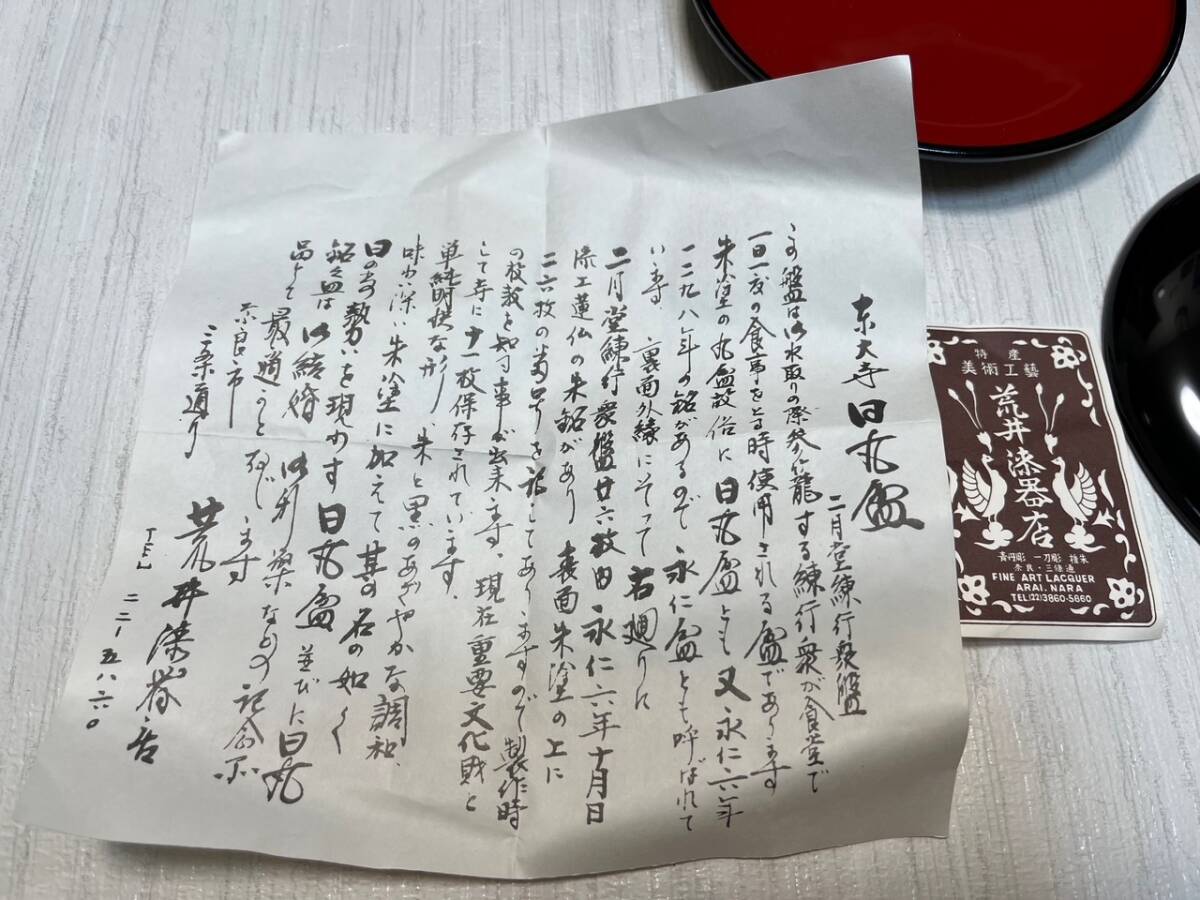 東大寺 日の丸盆
二月堂練行衆盤
この盤はお水取りの際参籠する練行衆が食堂で
一日一度の食事をとる時使用される盆であります
朱塗の丸盆故俗に日の丸盆とも又永仁六年
一二九八年の銘があるので永仁盆とも呼ばれて
います、裏面外縁にそって右廻りに
二月堂練行衆盤廿六枚内永仁六年十月日
漆工蓮仏の朱銘があり 表面朱塗の上に
二六枚の番号を記してありますので製作時
の枚数を知る事が出来ます、現在重要文化財と
して寺に十一枚保存されています。
単純明快な形、朱と黒のあざやかな調和、
味わい深い朱塗に加えて其の名の如く
日の出の勢いを現わす 日の丸盆 並びに日の丸
銘々皿は御結婚 御新築などの記念
品として最適のことと存じます
奈良市
三条通り 荒井漆器店
TEL 二二-五八六〇
特産
美術工藝
荒井漆器店
青丹彫 一刀彫 堆朱
奈良・三條通
FINE ART LACQUER
ARAI. NARA
TEL(22)3860-5660